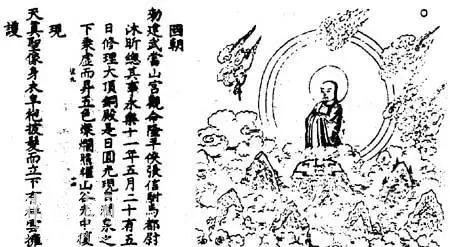 國朝
勑建武當山宮觀命隆平侯張信駙馬都尉
沐昕總其事永樂十一年五月二十有五
日修理大頂銅殿是日圓光現泉之
下乘虛而昇五色燦爛騰耀山谷光中復
現
天真聖像身衣皂袍披髮而立下有雲擁
護